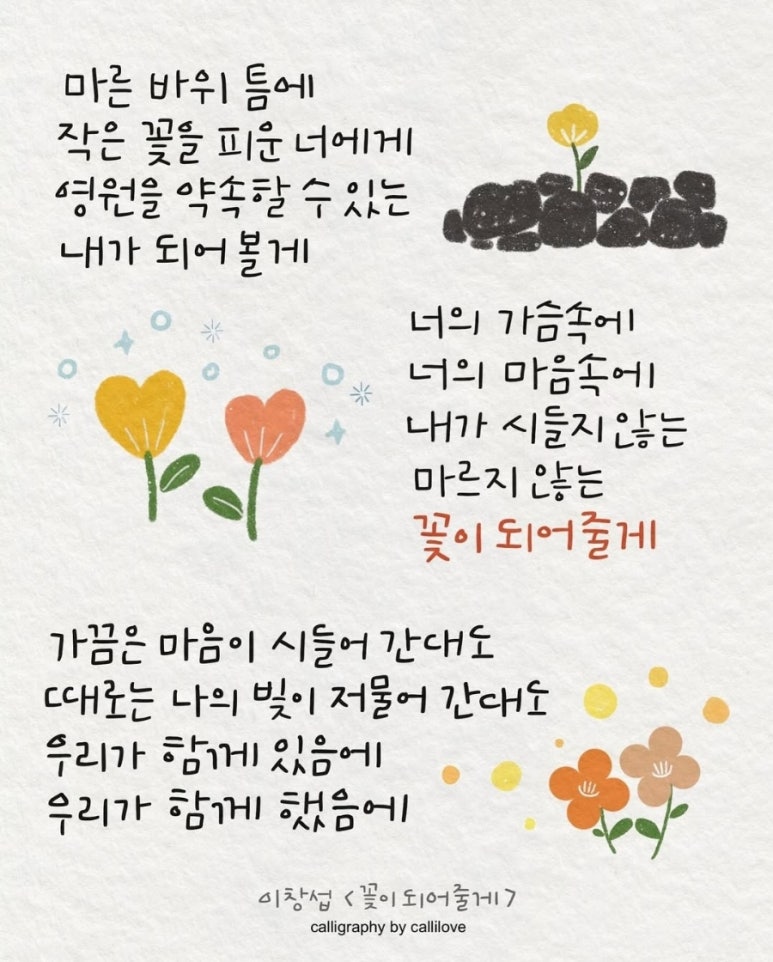 마른 바위 틈에
작은 꽃을 피운 너에게
영원을 약속할 수 있는
내가 되어 볼게
너의 가슴속에
너의 마음속에
내가 시들지 않는
마르지 않는
꽃이 되어줄게
가끔은 마음이 시들어 간대도
때로는 나의 빛이 저물어 간대도
우리가 함께 있음에
우리가 함께 했음에
이창섭 <꽃이 되어줄게>
calligraphy by callilove